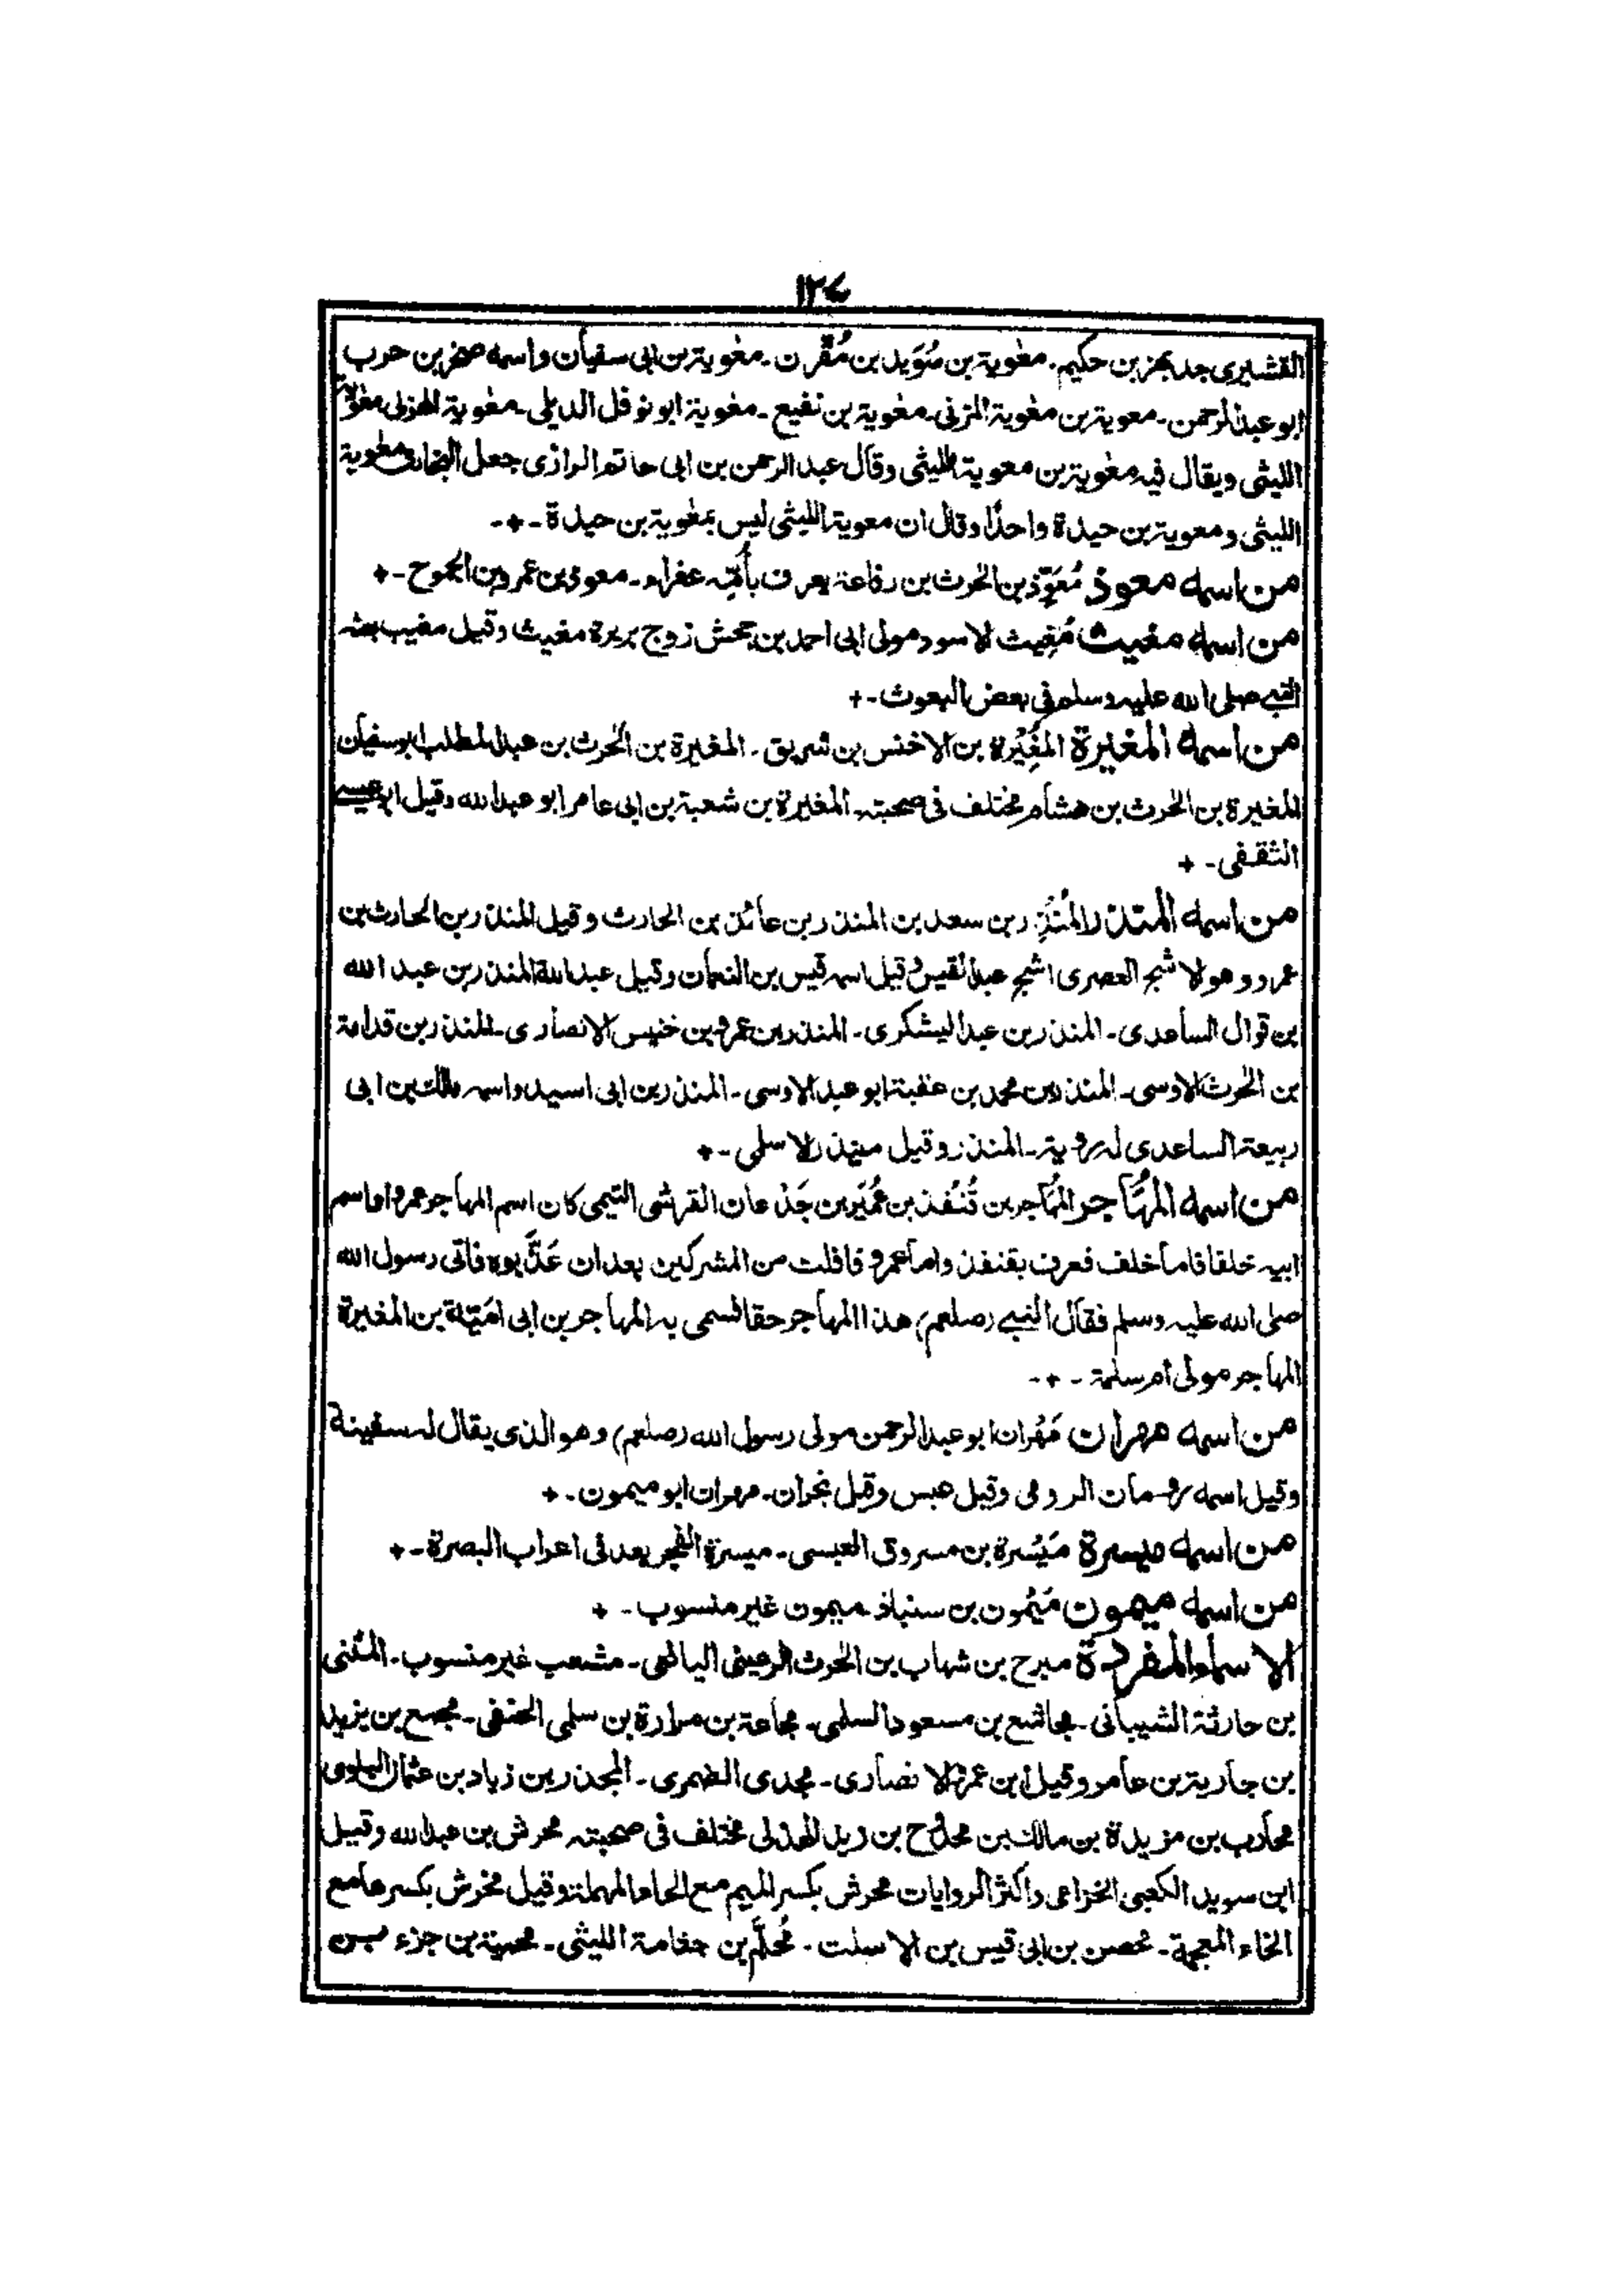 ١٢٧
القشيرى جد بهز بن حكيم ـ معٰوية بن سُوَيد بن مُقَرّن ـ معٰوية بن ابى سفيان واسمه صخر بن حرب
ابو عبد الرحمن ـ معوية بن معٰوية المزنى ـ معٰوية بن نفيع ـ معٰوية ابو نوفل الديلى ـ معٰوية الهزلى معٰوية
الليثى ويقال فيه معٰوية بن معوية الليثى وقال عبد الرحمن بن ابى حاتم الرازى جعل البخارى معٰوية
الليثى ومعوية بن حيدة واحدًا وقال ان معوية الليثى ليس بمعٰوية بن حيدة ـ+ـ
من اسمه معوذ مُعَوِّذ بن الحٰرث بن رفاعة يعرف بأُمِّه عفراء ـ معوذ بن عمرو بن الجموح ـ+
من اسمه مغيث مُغِيث الاسود مولى ابى احمد بن جحش زوج بريرة مغيث وقيل مغيب بعثه
النبى صلى الله عليه وسلم فى بعض البعوث ـ+
من اسمه المغيرة المُغِيْرة بن الاخنس بن شريق ـ المغيرة بن الحٰرث بن عبد المطلب ابو سفيان
المغيرة بن الحٰرث بن هشام مختلف فى صحبته ـ المغيرة بن شعبة بن ابى عامر ابو عبد الله وقيل ابو عيسى
الثقفى ـ +
من اسمه المنذر المُنْذِر بن سعد بن المنذر بن عائذ بن الحارث وقيل المنذر بن الحارث بن
عمرو وهو لاشج العصرى اشج عبد القيس وقيل اسمه قيس بن النعمان وقيل عبد الله المنذر بن عبد الله
بن قوال الساعدى ـ المنذر بن عبد اليشكرى ـ المنذر بن عمرو بن خنيس الانصارى ـ المنذر بن قدامة
بن الحٰرث الاوسى ـ المنذر بن محمد بن عقبة ابو عبد الاوسى ـ المنذر بن ابى اسيد واسمه مالك بن ابى
ربيعة الساعدى له روية ـ المنذر وقيل منيذر الاسلمى ـ+
من اسمه المهَاجر المُهاجر بن قُنْفذ بن عُمَير بن جَدْعان القرشى التيمى كان اسم المهاجر عمرو اما اسم
ابيه خلفا فاما خلف فعرف بقنفذ واما عمرو فافلت من المشركين بعد ان عَذَّبوه فاتى رسول الله
صلى الله عليه وسلم فقال النبى (صلعم) هذا المهاجر حقا فسمى به المهاجر بن ابى اميّة بن المغيرة
المهاجر مولى ام سلمة ـ+ـ
من اسمه مهران مَهْران ابو عبد الرحمن مولى رسول الله (صلعم) وهو الذى يقال له سفينة
وقيل اسمه رومان الرومى وقيل عبس وقيل نجران ـ مهران ابو ميمون ـ+
من اسمه ميسرة مَيْسَرة بن مسروق العبسى ـ ميسرة الفجر يعد فى اعراب البصرة ـ+
من اسمه ميمون مَيْمون بن سنباذ ـ ميمون غير منسوب ـ +
الاسماء المفردة مبرح بن شهاب بن الحٰرث الرعينى اليافعى ـ مشعب غير منسوب ـ المثنى
بن حارثة الشيبانى ـ مجاشع بن مسعود السلمى ـ مجاعة بن مرارة بن سلمى الحنفى ـ مجمع بن يزيد
بن جارية بن عامر وقيل ابن عمرو الانصارى ـ مجدى الضمرى ـ المجذر بن زياد بن عثمان البلوى
محارب بن مزيدة بن مالك بن بن زيد الهذلى مختلف فى صحبته محرش بن عبد الله وقيل
ابن سويد الكعبى الخزاعى واكثر الروايات محرش بكسر الميم مع الحاء المهملة وقيل مخرش بكسرها مع
الخاء المعجمة ـ محصن بن ابى قيس بن الاسلت ـ مُحلَّم بن جثامة الليثى ـ محمية بن جزء بن